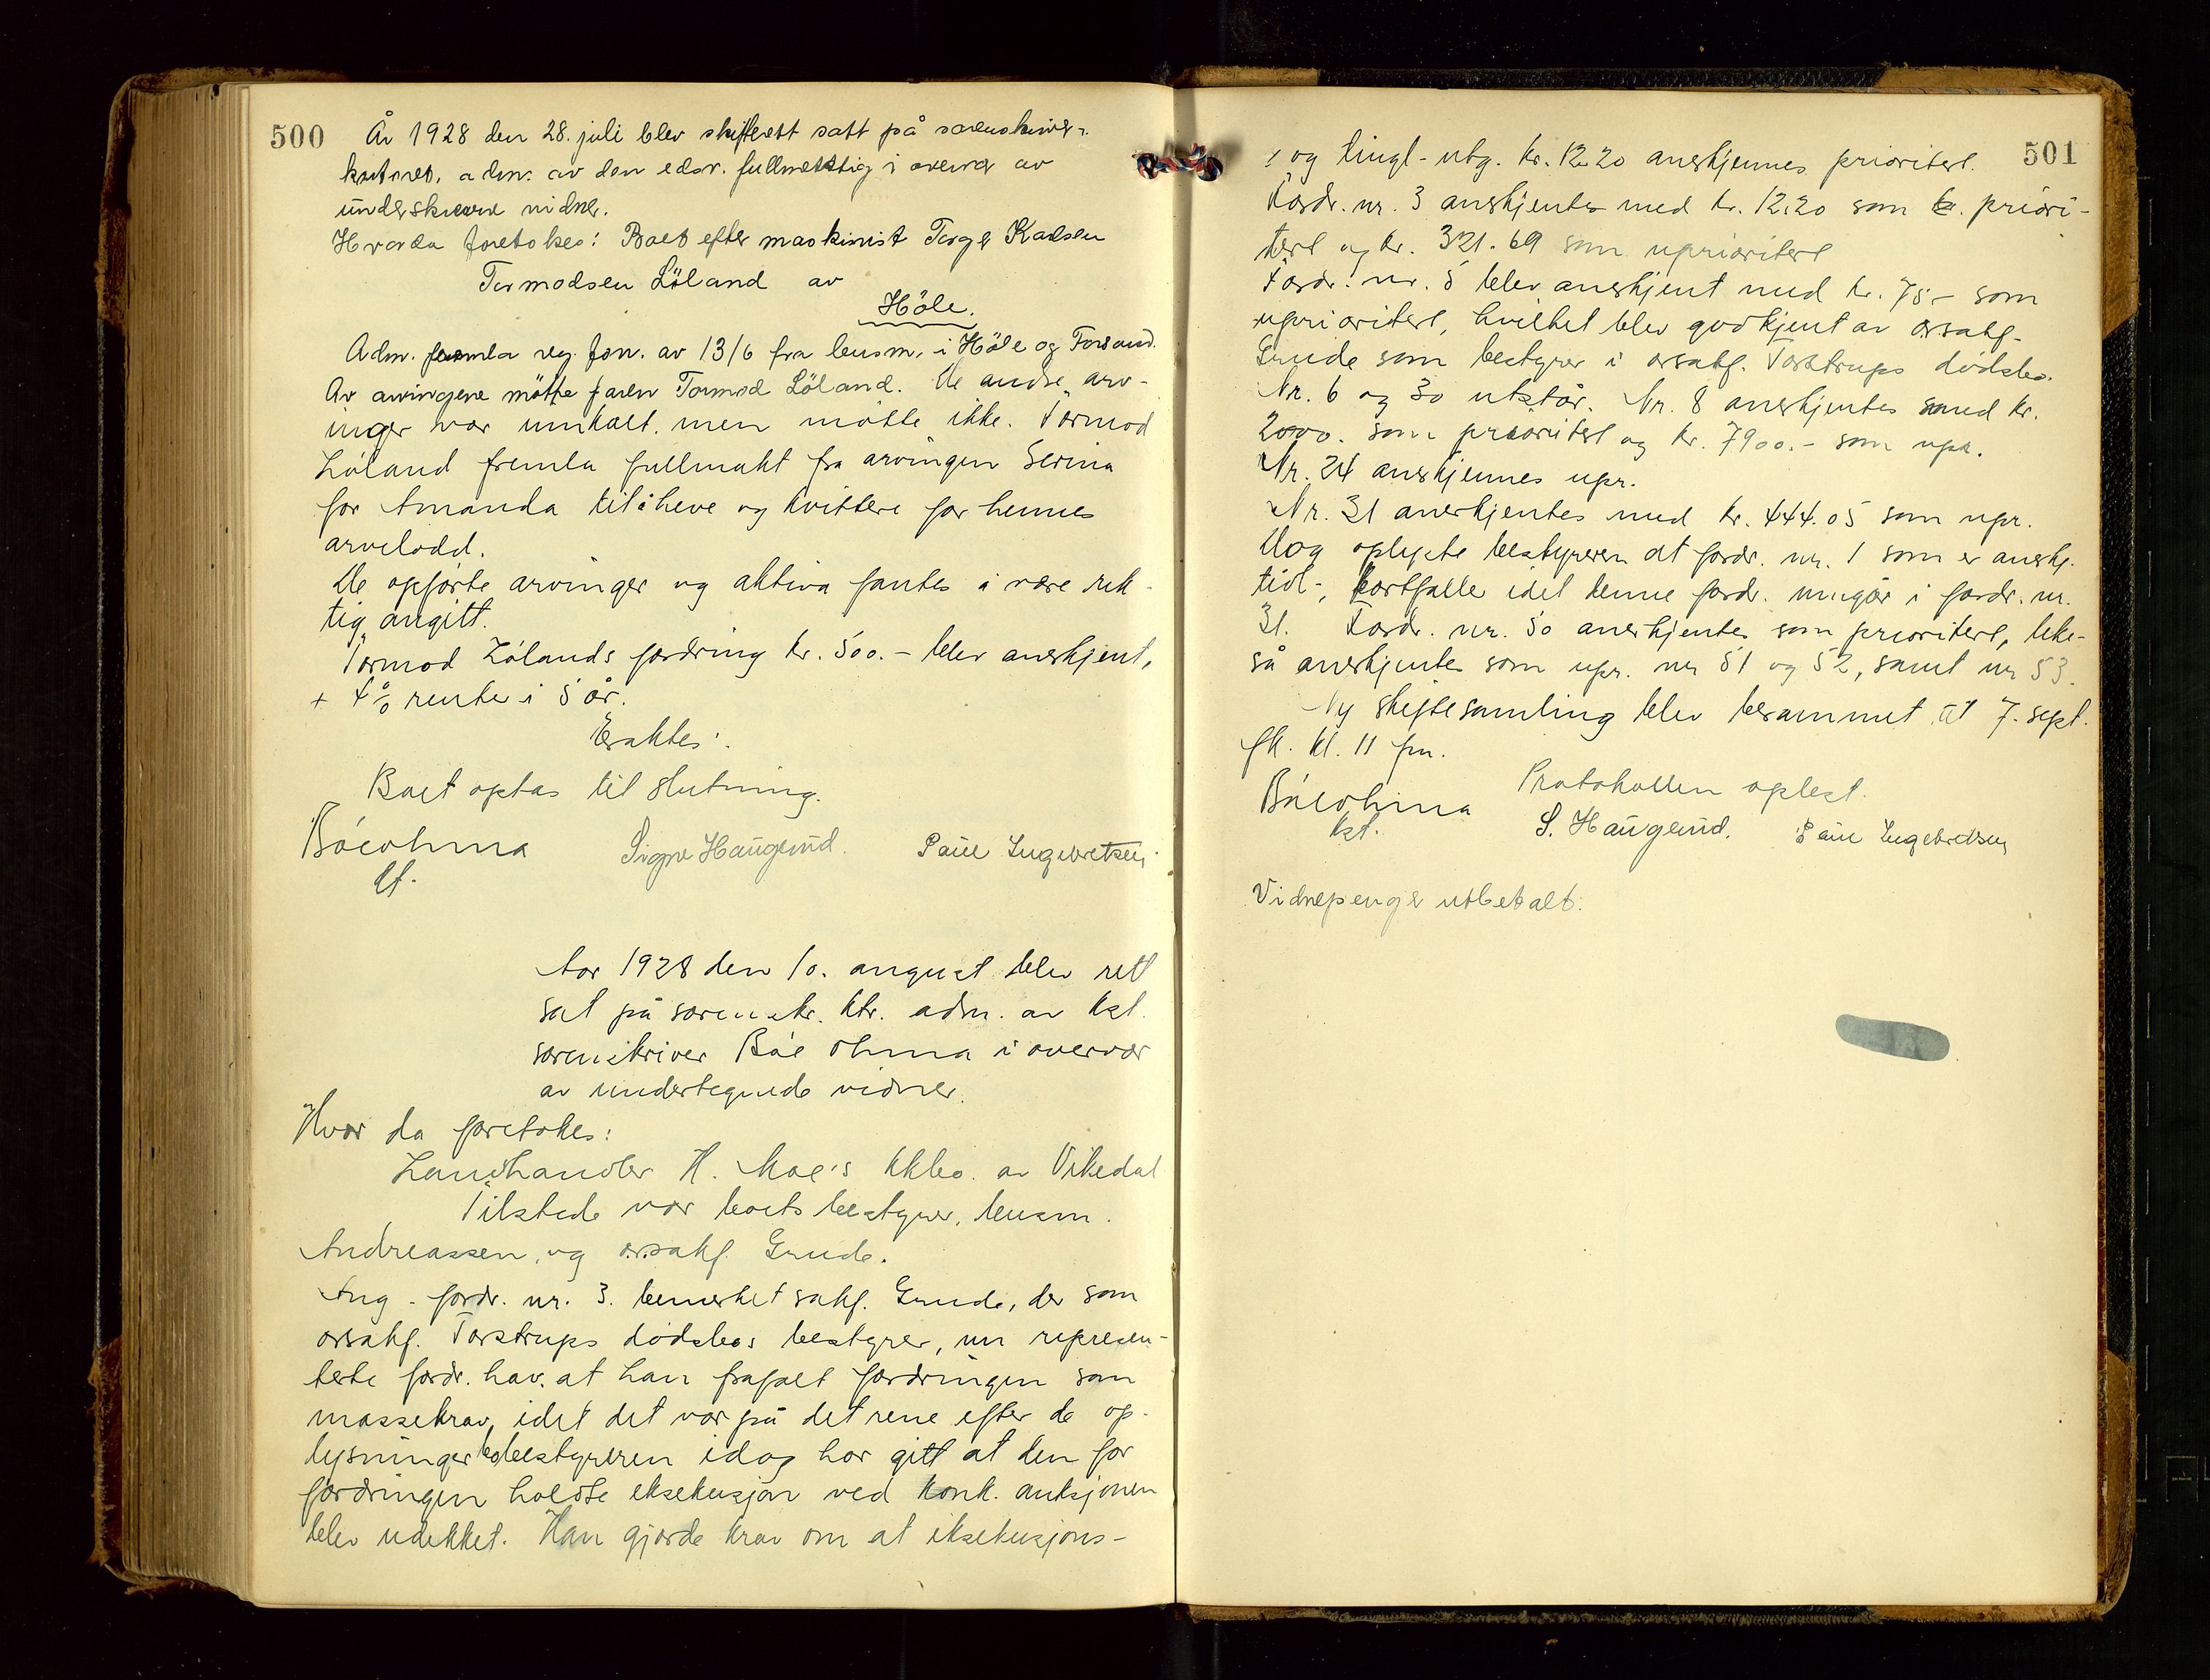 500
År 1928 den 28. juli blev skifterett satt på sorenskriver-
kontoret, adm. av den edsv. fullmektig i overvær av
underskrevne vidner.
Hvorda foretokes: Boet efter maskinist Torge Kadsen
Tormodsen Löland av
Höle.
Adm. fremla reg. forr. av 13/6 fra lensm. i Höle og Forsand.
Av arvingene mötte faren Tormod Löland. De andre arv-
inger var innkalt, men møtte ikke. Tormod
Løland fremla fullmakt fra arvingen Serina
for Amanda til å heve og kvittere for hennes
arvelodd.
De opførte arvinger og aktiva fantes å være rik-
tig angitt.
Tormod Lølands fordring kr. 500.- blev anerkjent,
+ 4% rente i 5 år.
Eraktes:
Boet optas til slutning.
Böeohma
kst.
Signe Haugerud.
Paul Ingebretsen
Aar 1928 den 10. august blev rett
sat på sorenskr. ktr. adm. av kst.
sorenskriver Böe Ohma i overvær
av undertegnede vidner.
Hvor da foretokes:
Landhandler H. Moe's kkbo. av Vikedal
Tilstede var boets bestyrer, lensm.
Andreassen, og orsakf. Grude.
Ang. fordr. nr. 3. bemerket sakf. Grude, der som
orsakf. Torstrups dødsbos bestyrer, nu represen-
terte fordr. hav. at han frafalt fordringen som
massekrav, idet det var på det rene efter de op-
lysninger bobestyreren idag har gitt at den for
fordringen holdte eksekusjon ved konk. auksjonen
blev udekket. Han gjorde krav om at eksekusjons-
501
og tingl-utg. kr. 12.20 anerkjennes prioritert.
Fordr. nr. 3 anerkjentes med kr. 12.20 som priori-
tert og kr. 321.69 som uprioritert
Fordr. nr. 5 blev anerkjent med kr. 75.- som
uprioritert, hvilket blev godkjent av orsakf.
Grude som bestyrer i orsakf. Torstrups dødsbo.
Nr. 6 og 30 utstår. Nr. 8 anerkjentes med kr.
2000. som prioritert og kr. 7900.- som upr.
Nr. 24 anerkjennes upr.
Nr. 31 anerkjentes med kr. 444.05 som upr.
Dog oplyste bestyreren at fordr. nr. 1 som er anerkj.
tidl., bortfalle idet denne fordr. inngår i fordr. nr.
31. Fordr. nr. 50 anerkjentes som prioritert, like-
så anerkjentes som upr. nr 51 og 52, samt nr 53.
Ny skiftesamling blev berammet til 7. sept.
fk. kl. 11 fm.
Protokollen oplest.
Böeohma
kst.
S. Haugerud.
Paul Ingebretsen
Vidnepenger utbetalt.